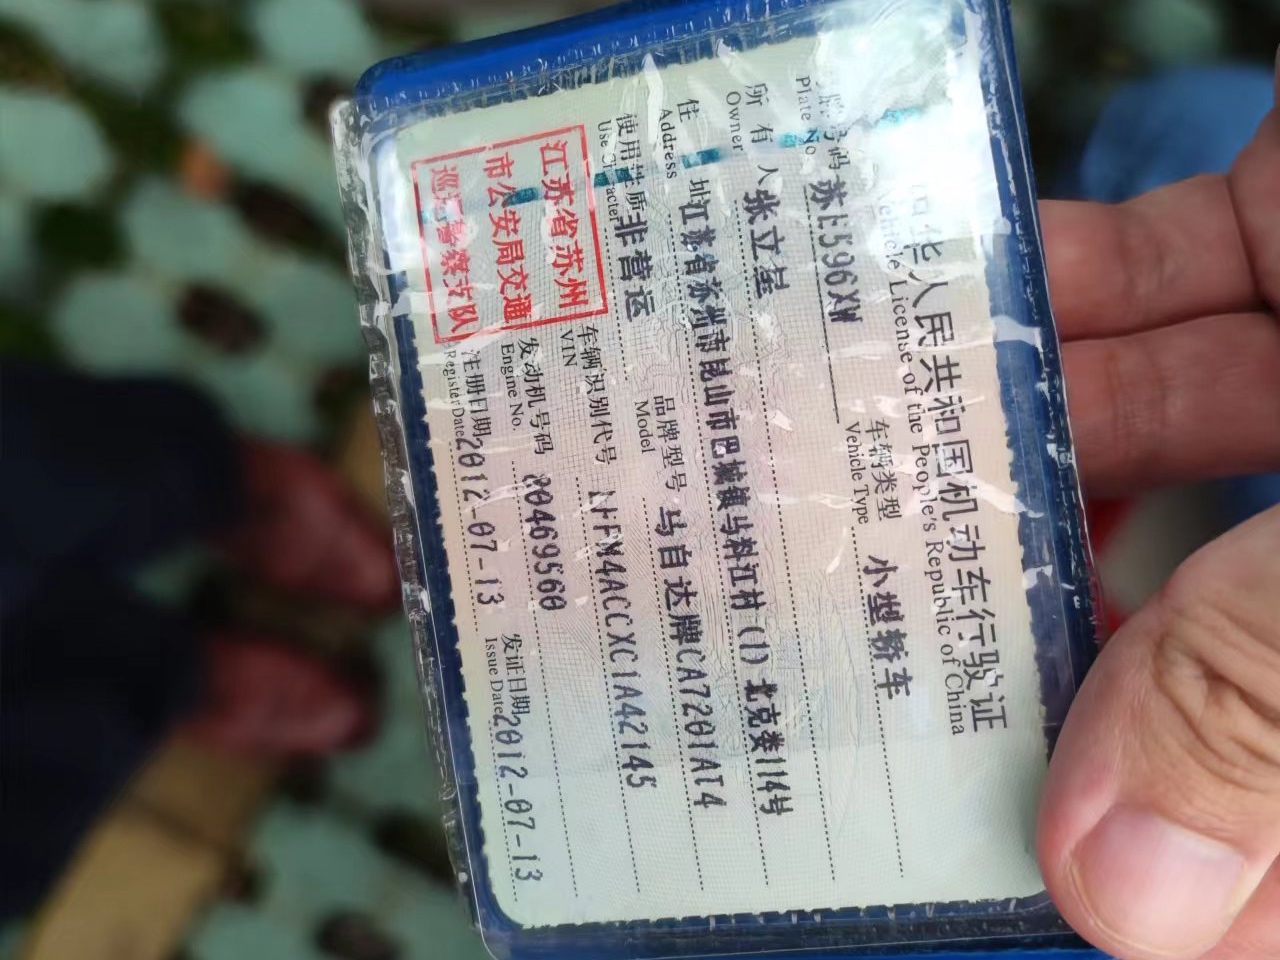 中华人民共和国机动车行驶证
Vehicle License of the People's Republic of China
号码 苏E596XW 车辆类型 小型轿车
Plate No. Vehicle Type
所有人 张立星
Owner
住址 江苏省苏州市昆山市巴城镇 江村(1)北 114号
Address
使用性质 非营运 品牌型号 马自达牌CA7201AT4
Use Character Model
江苏省苏州市公安局交通巡逻警察支队
车辆识别代号 LFPM4ACCXC1A42145
VIN
发动机号码 20469560
Engine No.
注册日期 2012-07-13 发证日期 2012-07-13
Register Date Issue Date